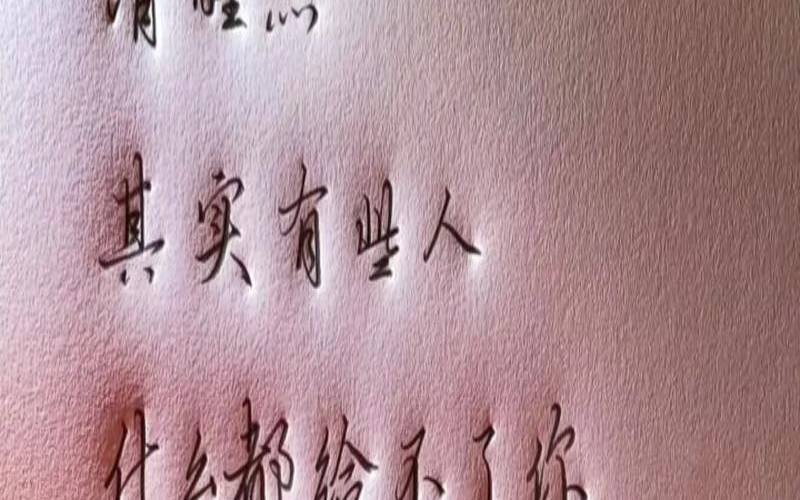 清醒点
其实有些人
什么都给不了你